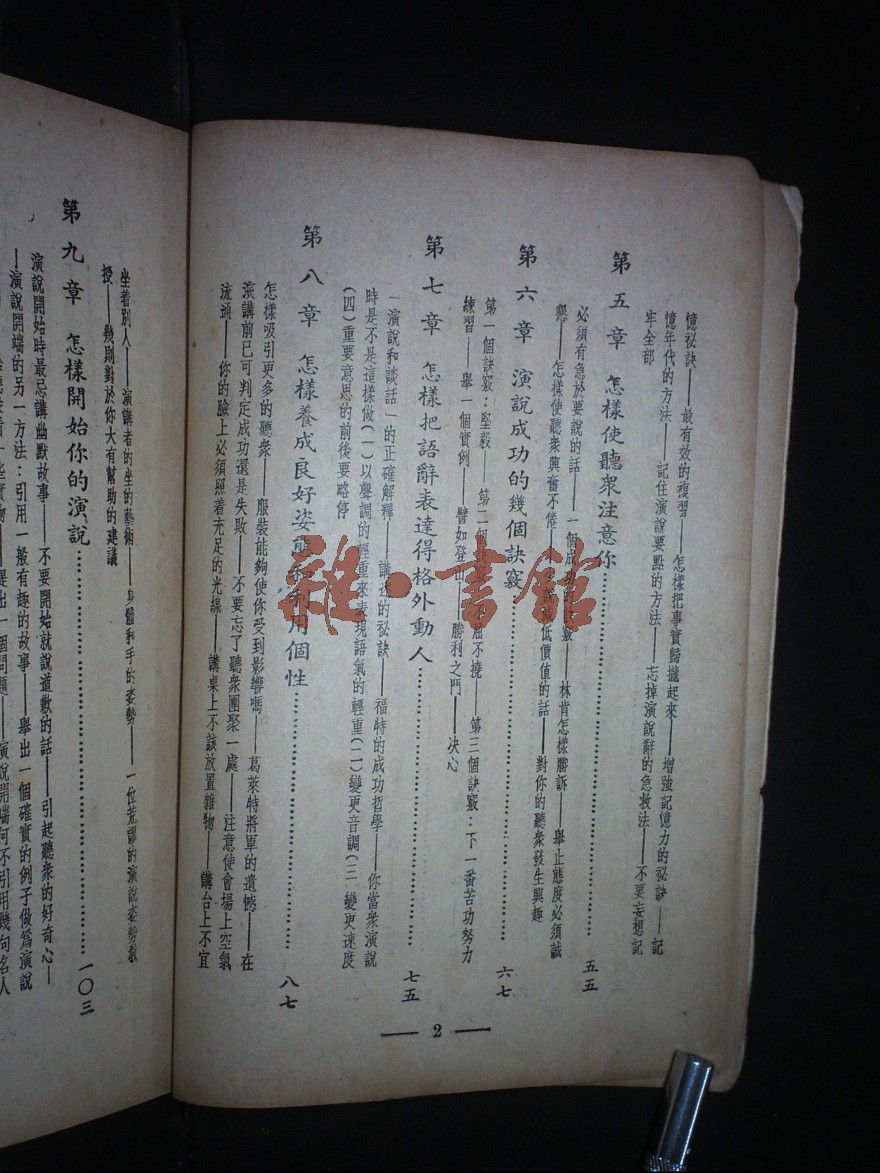 憶祕訣——最有效的複習——怎樣把事實歸攏起來——增強記憶力的祕訣——記
憶年代的方法——記住演說要點的方法——忘掉演說辭的急救法——不要妄想記
牢全部
第五章 怎樣使聽衆注意你……………………五五
必須有急於要說的話——一個成功的——林肯怎樣勝訴——舉止態度必須誠
懇——怎樣使聽衆興奮不倦——低價值的話——對你的聽衆發生興趣
第六章 演說成功的幾個訣竅……………………六七
第一個訣竅：堅毅——第二個不屈不撓——第三個訣竅：下一番苦功努力
練習——舉一個實例——譬如登山——勝利之門——决心
第七章 怎樣把語辭表達得格外動人……………………七五
「演說和談話」的正確解釋——講述的祕訣——福特的成功哲學——你當衆演說
時是不是這樣做(一)以聲調的輕重來表現語氣的輕重(二)變更音調(三 變更速度
(四)重要意思的前後要略停
第八章 怎樣養成良好姿態和利用個性……………………八七
怎樣吸引更多的聽衆——服裝能夠使你受到影響嗎——葛萊特將軍的遺憾——在
演講前已可判定成功還是失敗——不要忘了聽衆團聚一處——注意使會場上空氣
流通——你的臉上必須照着充足的光線——講桌上不該放置雜物——講台上不宜
2
坐着別人——演講者的坐的藝術——身體和手的姿勢——一位荒謬的演說姿勢教
授——幾則對於你大有幫助的建議
第九章 怎樣開始你的演說……………………一〇三
演說開始時最忌講幽默故事——不要開始就說道歉的話——引起聽衆的好奇心—
—演說開端的另一方法：引用一般有趣的故事——舉出一個確實的例子做篇演說
一些實物——提出一個問題——演說開端何不引用幾句名人
雜·書館